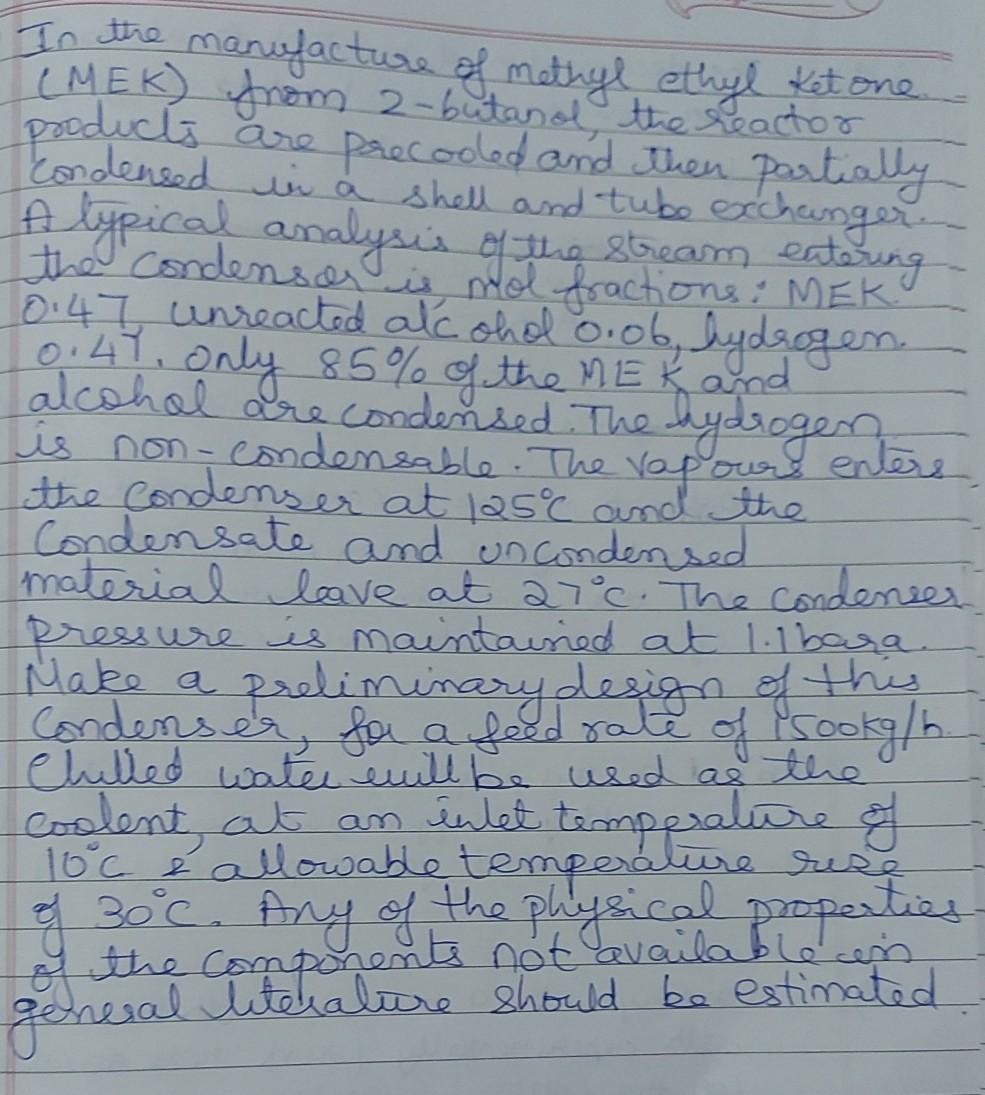 In the manufacture of methyl ethyl ketone
(MEK) from 2-butanol, the reactor
products are precooled and then partially
condensed in a shell and tube exchanger.
A typical analysis of the stream entering
the condenser is mol fractions: MEK
0.47, unreacted alcohol 0.06, hydrogen
0.47. Only 85% of the MEK and
alcohol are condensed. The hydrogen
is non-condensable. The vapours enters
the condenser at 125°C and the
Condensate and uncondensed
material leave at 27°C. The condenser
pressure is maintained at 1.1bara.
Make a preliminary design of this
Condenser, for a feed rate of 1500kg/h.
Chilled water will be used as the
coolent, at an inlet temperature of
10°C & allowable temperature rise
of 30°C. Any of the physical properties
of the components not available in
general literature should be estimated.